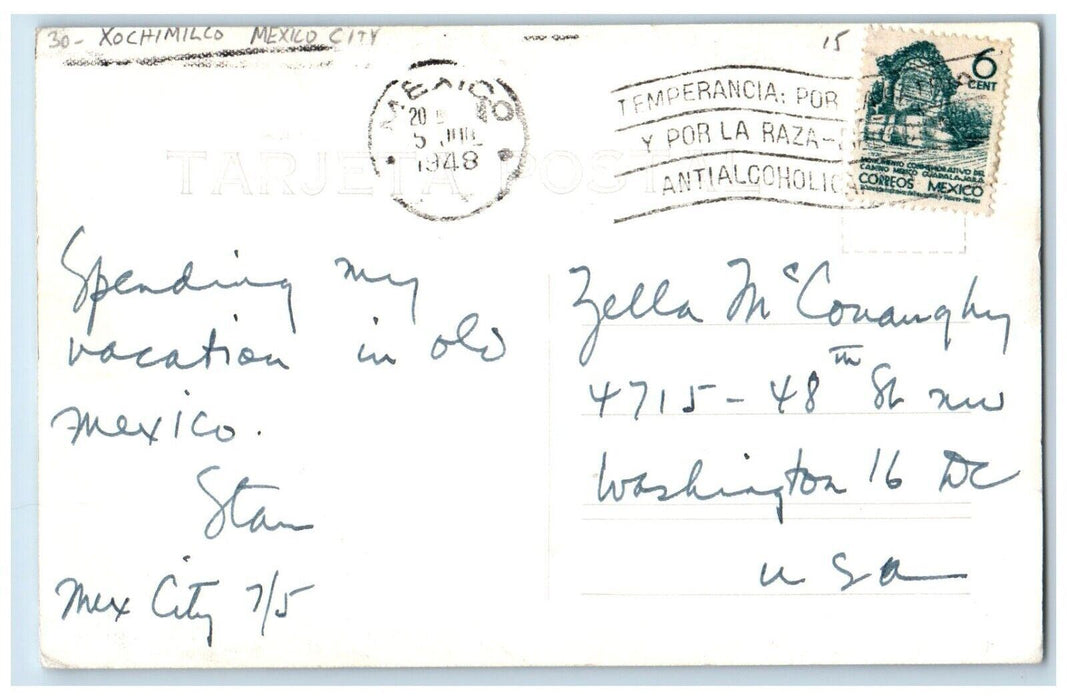 30- XOCHIMILCO MEXICO CITY
15
MEXICO
20
5 JUL
1948
TEMPERANCIA: POR
Y POR LA RAZA-
ANTIALCOHOLICA
6
CENT
MONUMENTO CONMEMORATIVO DEL
CAMINO MEXICO GUADALAJARA
CORREOS MEXICO
TARJETA POSTAL
Spending my
vacation in old
Mexico.
Stan
Mex City 7/5
Zella McConaughy
4715-48th St NW
Washington 16 DC
USA